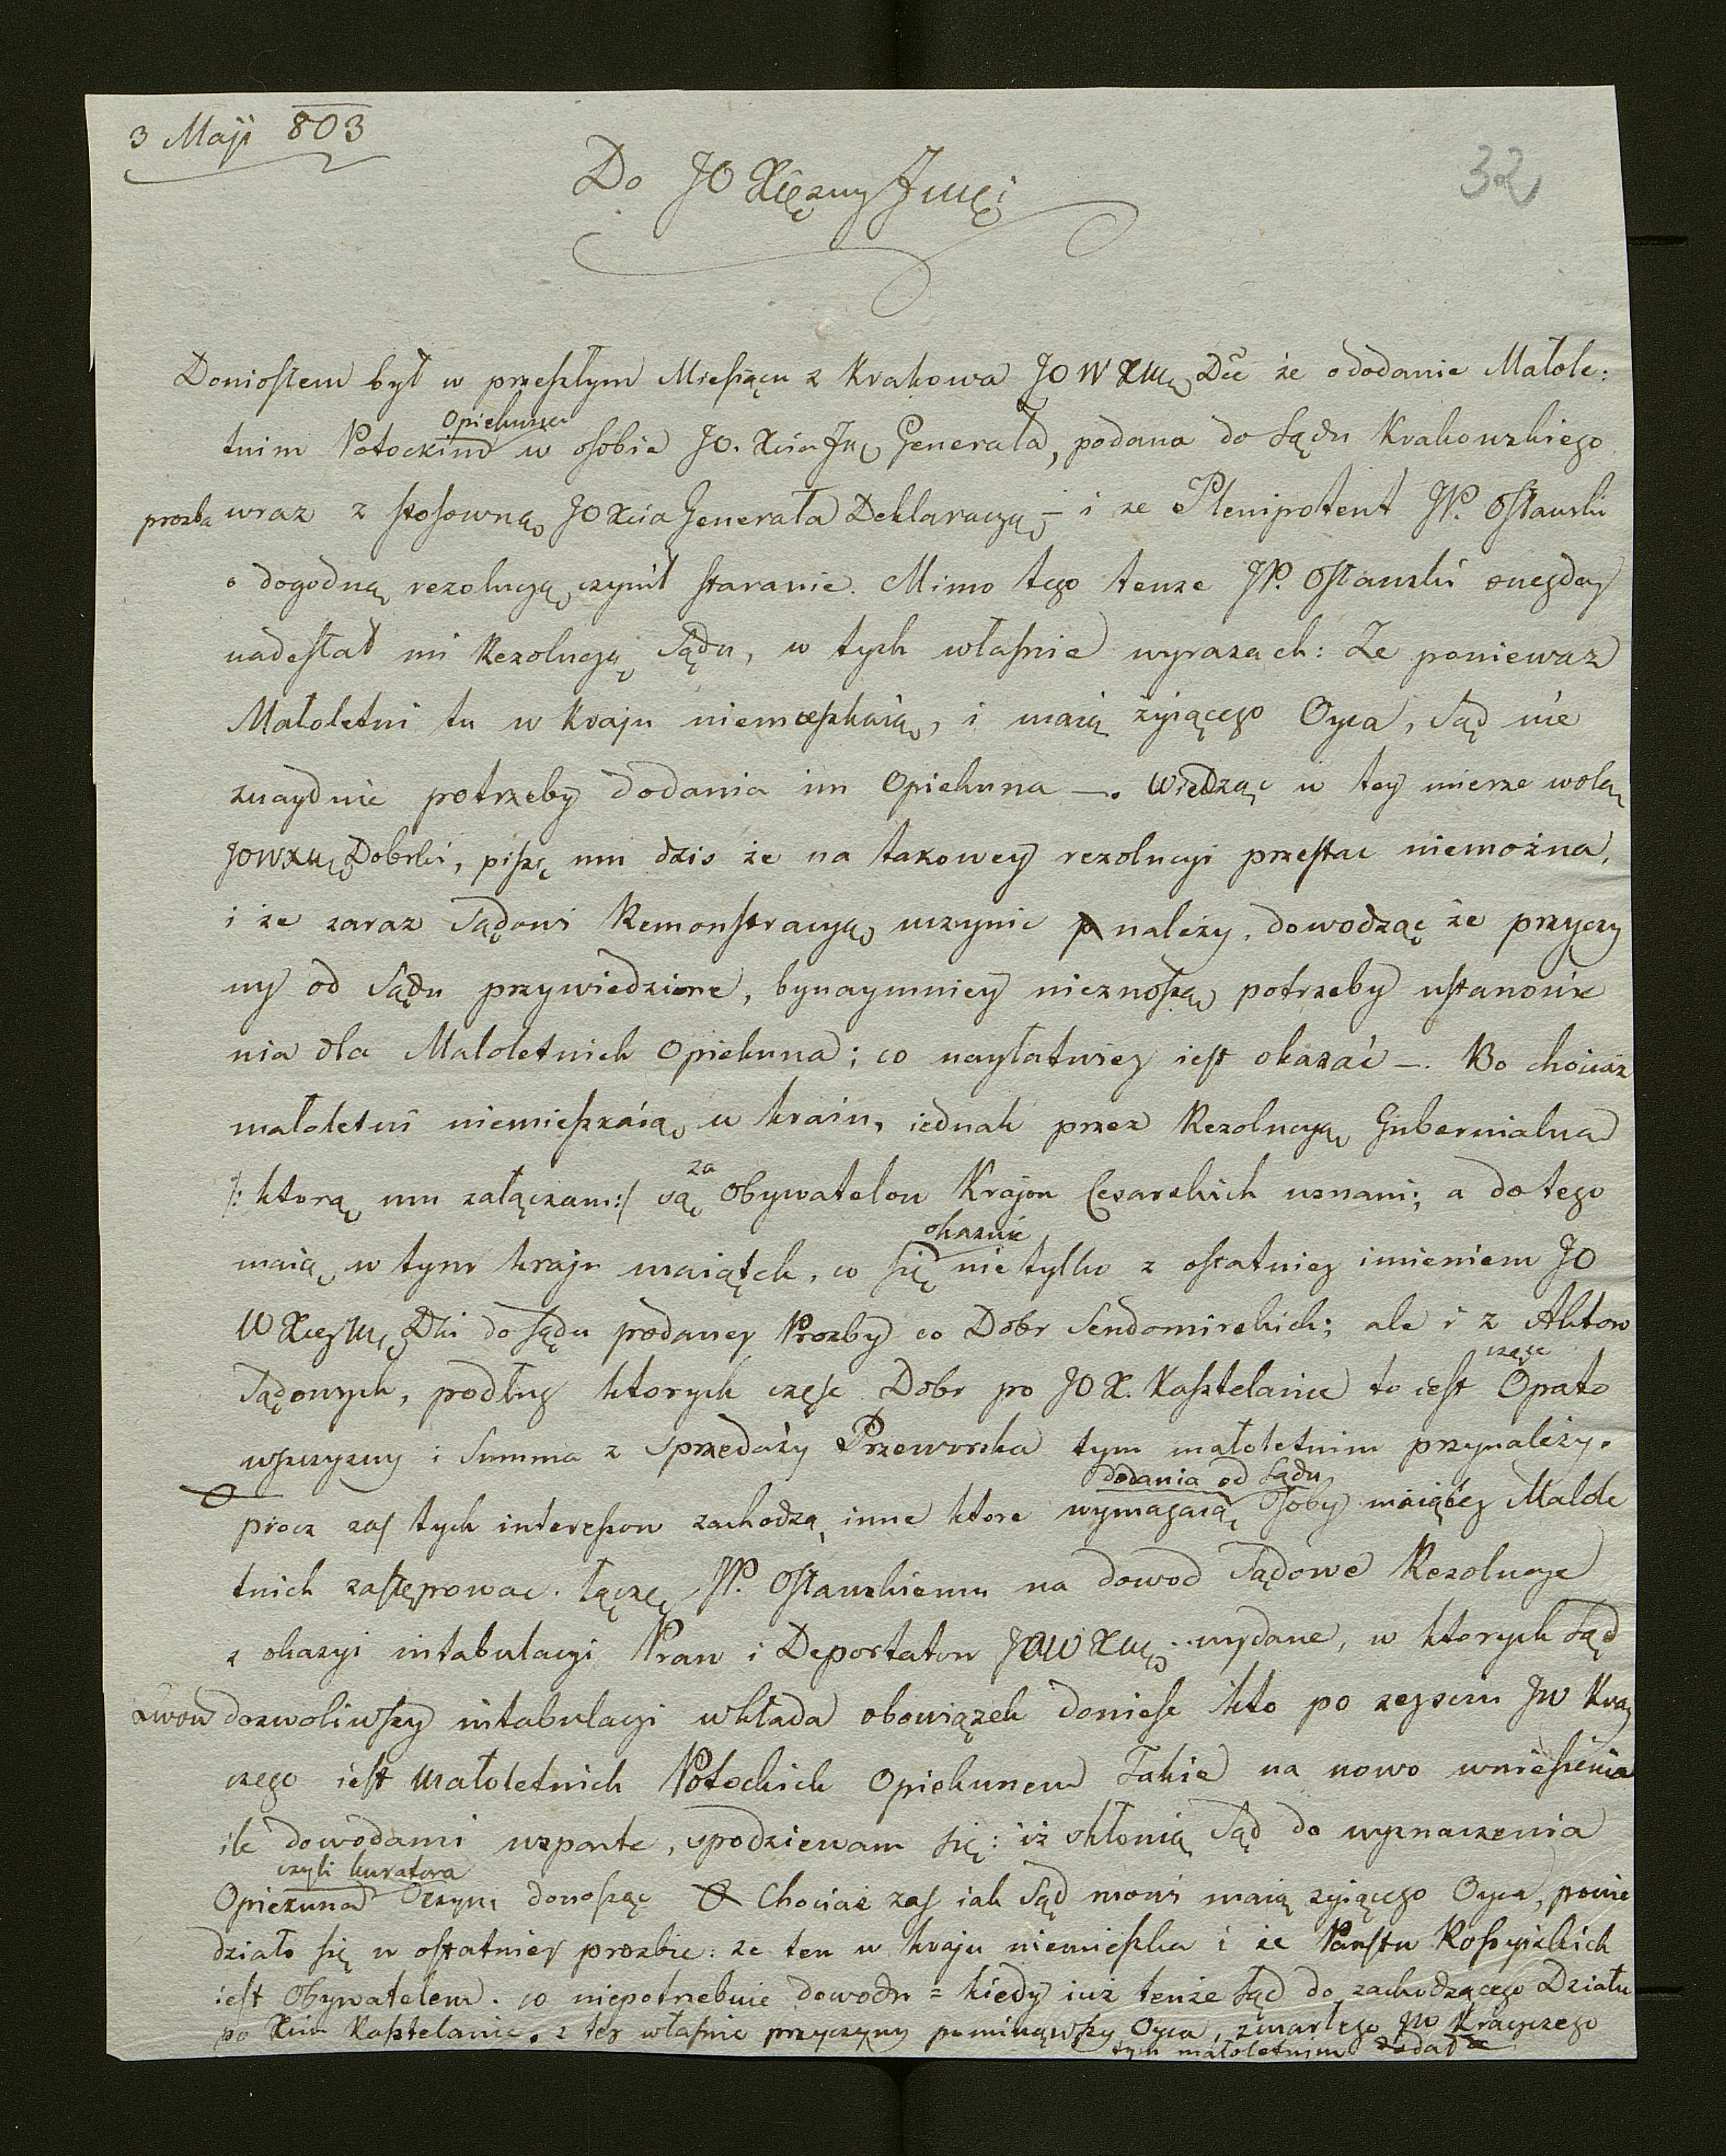 3 Maji 803
32
Do JO Xiężny Jmci
Doniosłem był w przeszłym Miesiącu z Krakowa JO W XMę Dć że o dodanie Małole:
tnim Potockim Opiekuna w osobie JO. Xcia Jmę Generała, podana do Sądu Krakowskiego
prozba wraz z stosowną JOXcia Generała Deklaracyą – i ze Plenipotent JP. Ostawski
o dogodną rezolucyą czynił staranie. Mimo tego tenze JP. Ostawski onegday
nadesłał mi Rezolucyą Sądu, w tych własnie wyrazach: Ze poniewaz
Małoletni tu w Kraju niemieszkaią, i maią zyiącego Oyca, Sąd nie
znayduie potrzeby dodania im Opiekuna –. Wiedząc w tey mierze wolą
JOWXMę Dobrki, piszę mu dzis że na takowey rezolucyi przestac niemożna,
i że zaraz Sądowi Remonstracyą uczynic należy, dowodząc że przyczy
ny od Sądu przywiedzione, bynaymniey nieznoszą potrzeby ustanowie
nia dla Małoletnich Opiekuna; co nayłatwiey iest okazać –. Bo chociaż
małoletni niemieszkaią w kraiu, iednak przez Rezolucyą Gubernialną
/: ktorą mu załączam :/ są za Obywatelow Krajow Cesarskich uznani; a do tego
maią w tym kraju maiątek, co się okazuie nie tylko z ostatniey imieniem JO
W Xcey Mę Dki do sądu podaney Prozby co Dobr Sendomirskich; ale i z Aktow
Sądowych, podług ktorych częsc Dobr po JO X. Kasztelanie to iest częsc Opato
wszczyzny i Summa z Sprzedaży Przeworska tym małoletnim przynależy.
procz zas tych interessow zachodzą inne ktore wymagaią dodania od Sądu Osoby maiącey Małole
tnich zastępowac. Łączę JP. Ostawskiemu na dowod Sądowe Rezolucye
z okazyi intabulacyi Praw i Deportatow JOW XMę wydane, w ktorych Sąd
dozwoliwszy intabulacyi wkłada obowiązek doniesc kto po zeysciu JW Kray
czego iest małoletnich Potockich Opiekunem Takie na nowo wniesienia
ile dowodami wsparte, spodziewam się: iż skłonią Sąd do wyznaczenia
Opiekuna czyli kuratora O czym donosząc Chociaż zas iak Sąd mowi maią zyiącego Oyca, powie
działo się w ostatniey prozbie: ze ten w kraju niemieszka i że Panstw Rossyiskich
iest Obywatelem. co niepotrzebuie dowodu = kiedy iuż tenże Sąd do zachodzącego Działu
po Xciu Kasztelanie. z tey własnie przyczyny pominąwszy Oyca, zmarłego JW Krayczego
tym małoletnim dodał